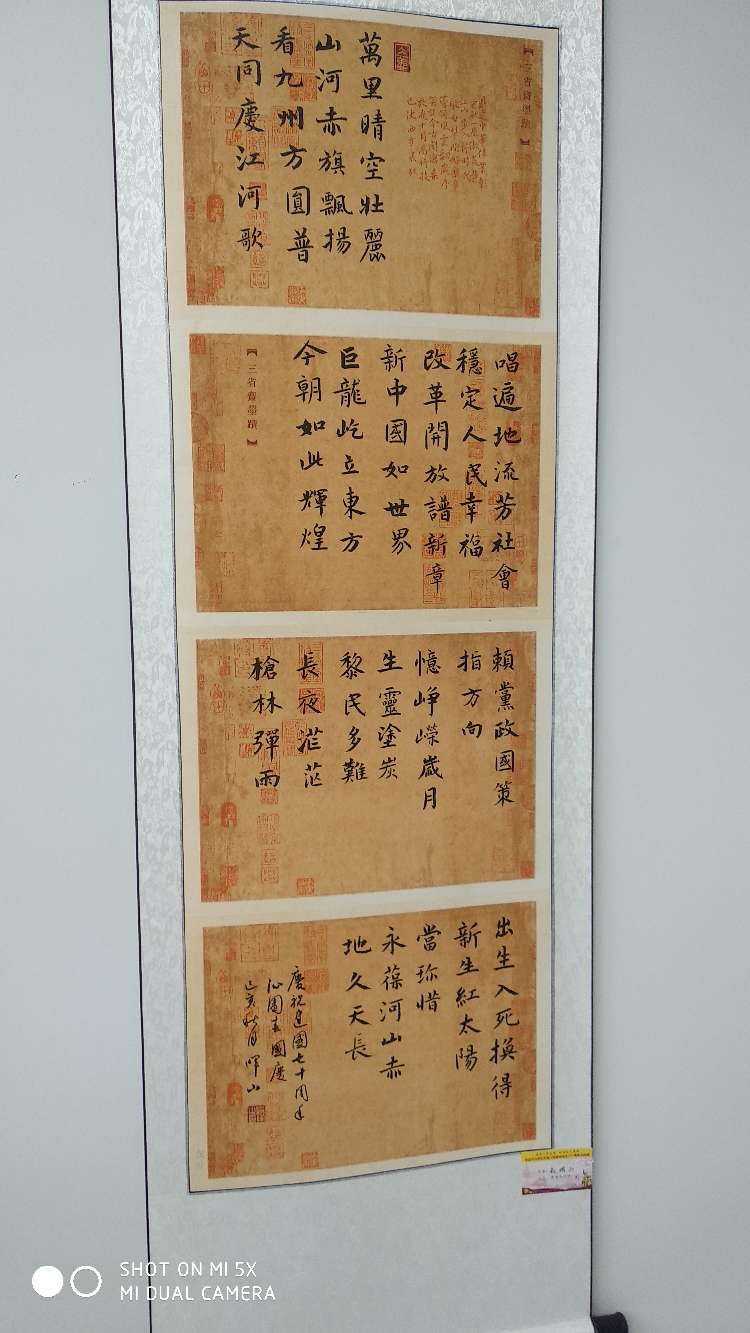 【三省齋墨蹟】
萬里晴空壯麗
山河赤旗飄揚
看九州方圓普
天同慶江河歌
唱遍地流芳社會
穩定人民幸福
改革開放譜新章
新中國如世界
巨龍屹立東方
今朝如此輝煌
【三省齋墨蹟】
賴黨政國策
指方向
憶崢嶸歲月
生靈塗炭
黎民多難
長夜茫茫
槍林彈雨
出生入死換得
新生紅太陽
當珎惜
永葆河山赤
地久天長
慶祝建國七十周年
沁園春國慶
己亥秋月暉山
SHOT ON MI 5X
MI DUAL CAMERA